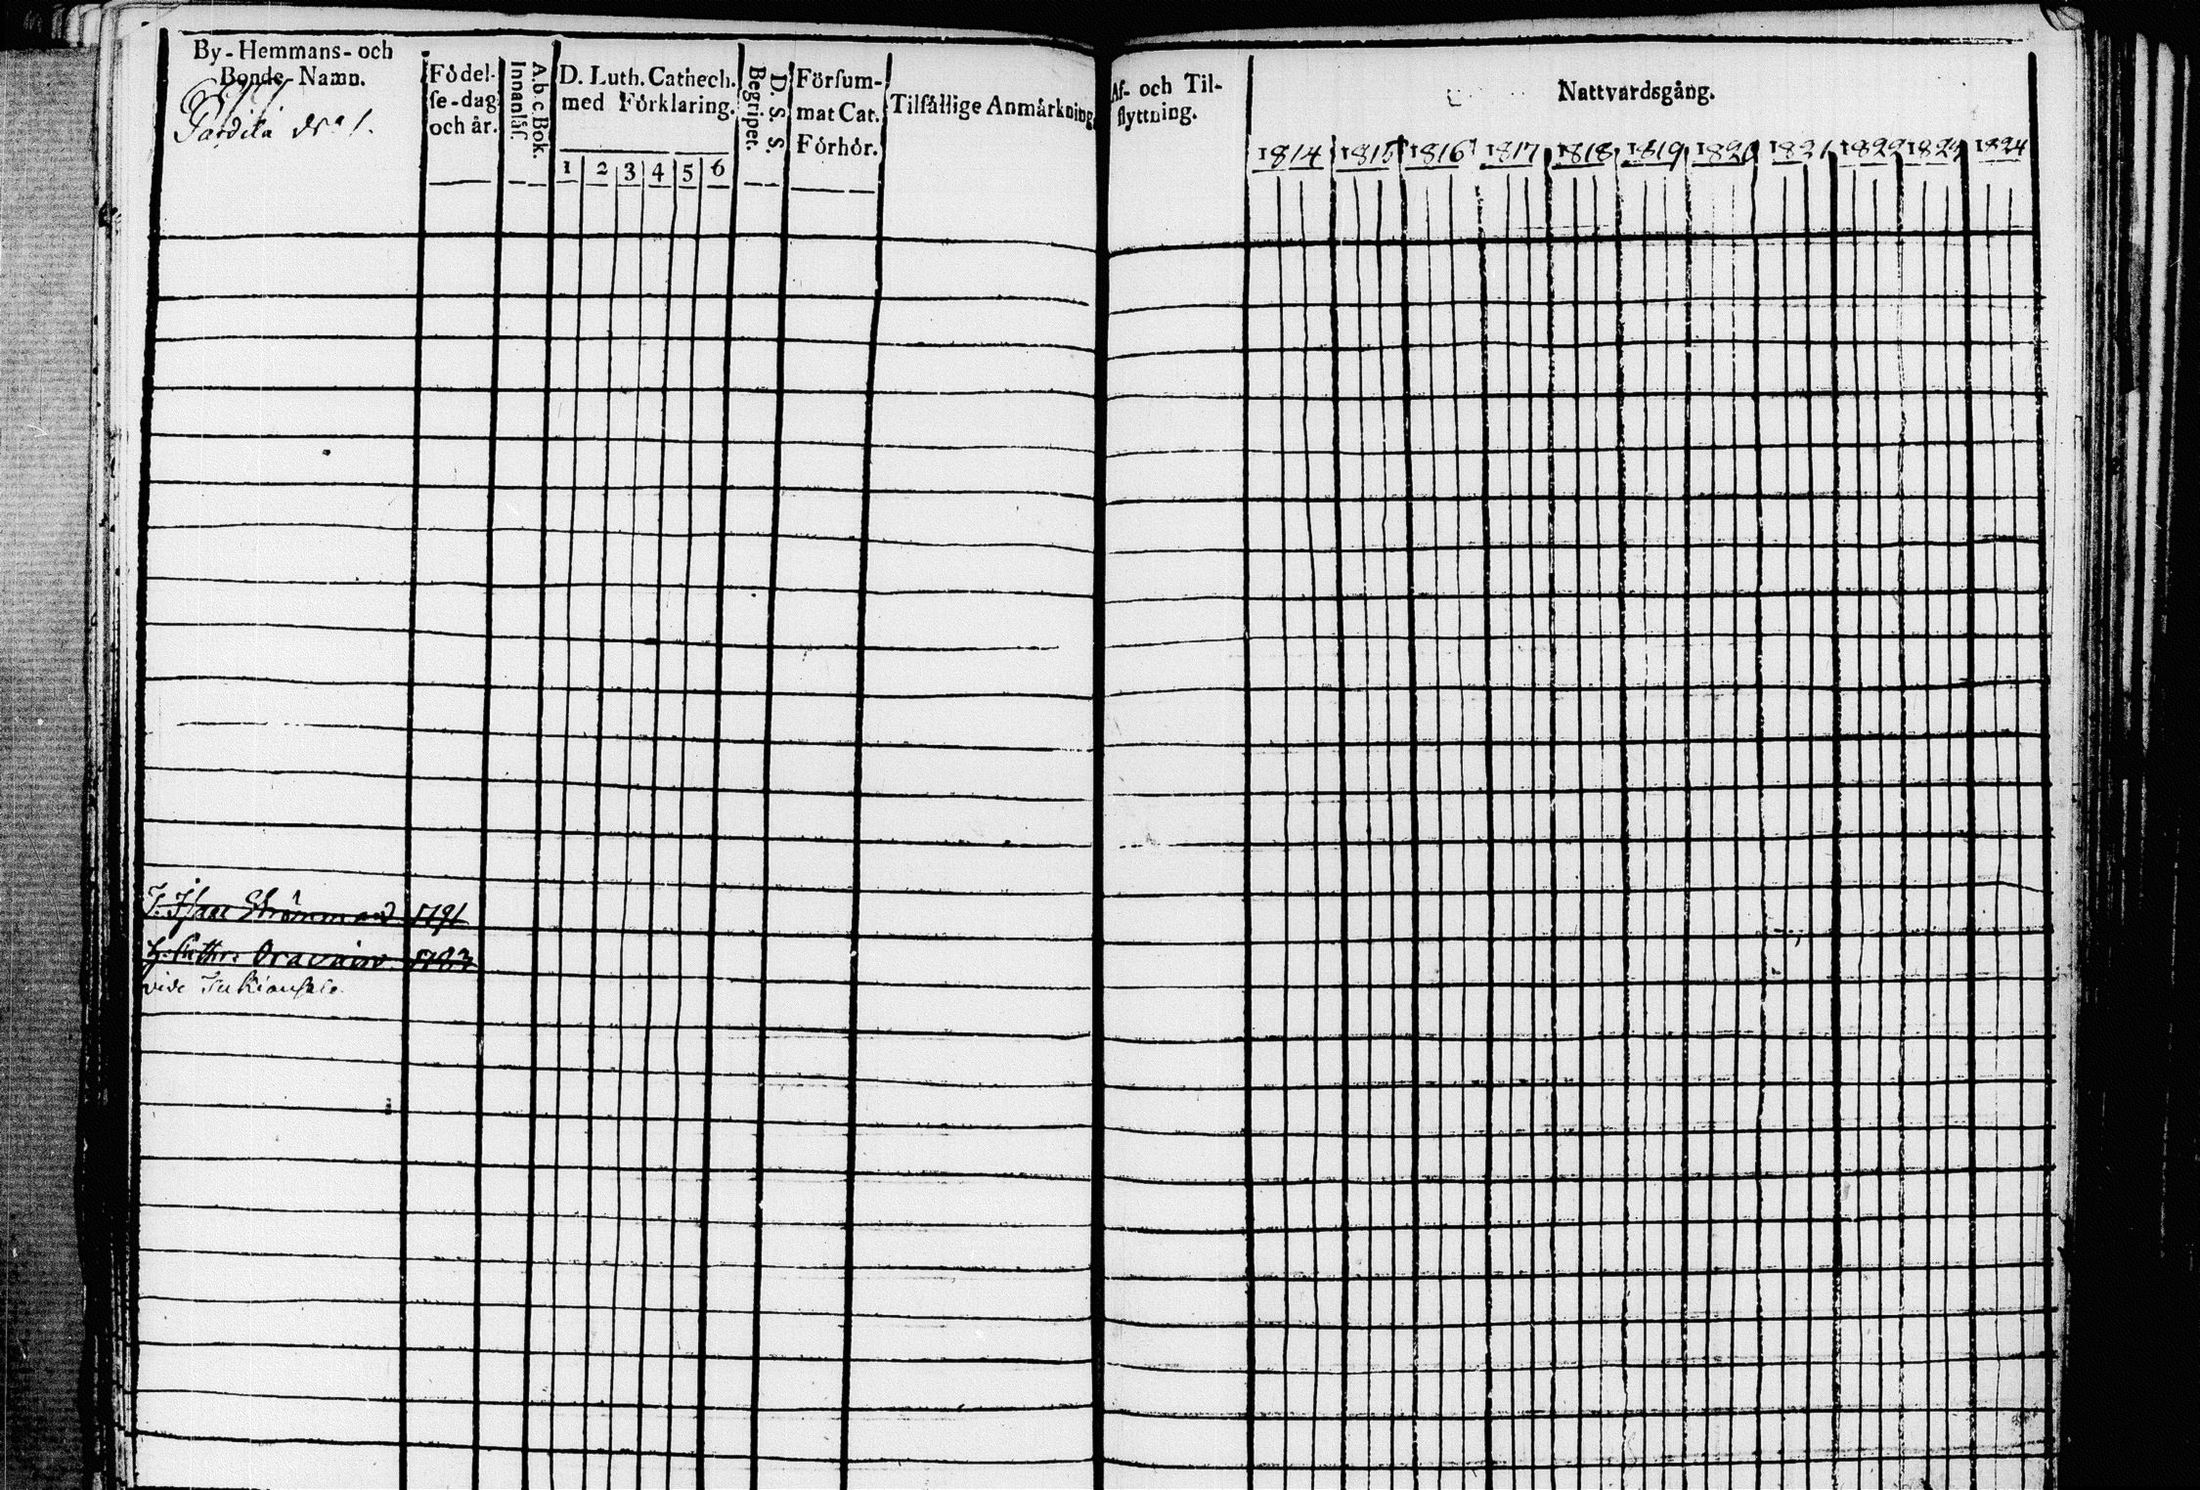 By-Hemmans- och
Bonde-Namn.
Födel-
ſe-dag
och år.
A.b.c.Bok.
Innanläſ.
D. Luth. Cathech.
med Förklaring.
1 2 3 4 5 6
D. S. S.
Begriper.
Förſum-
mat Cat.
Förhör.
Tilfällige Anmärkning
Af- och Til-
flyttning.
Nattvardsgång.
1814 1815 1816 1817 1818 1819 1820 1821 1822 1823 1824
1791
Oravain 1783
vide